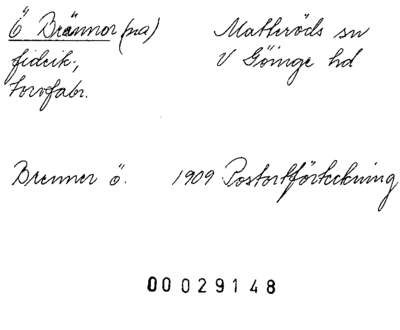 Ö Brännor (na)
fideik.,
torvfabr.
Matteröds sn
V Göinge hd
Brenner ö. 1909 Postortförteckning
00029148